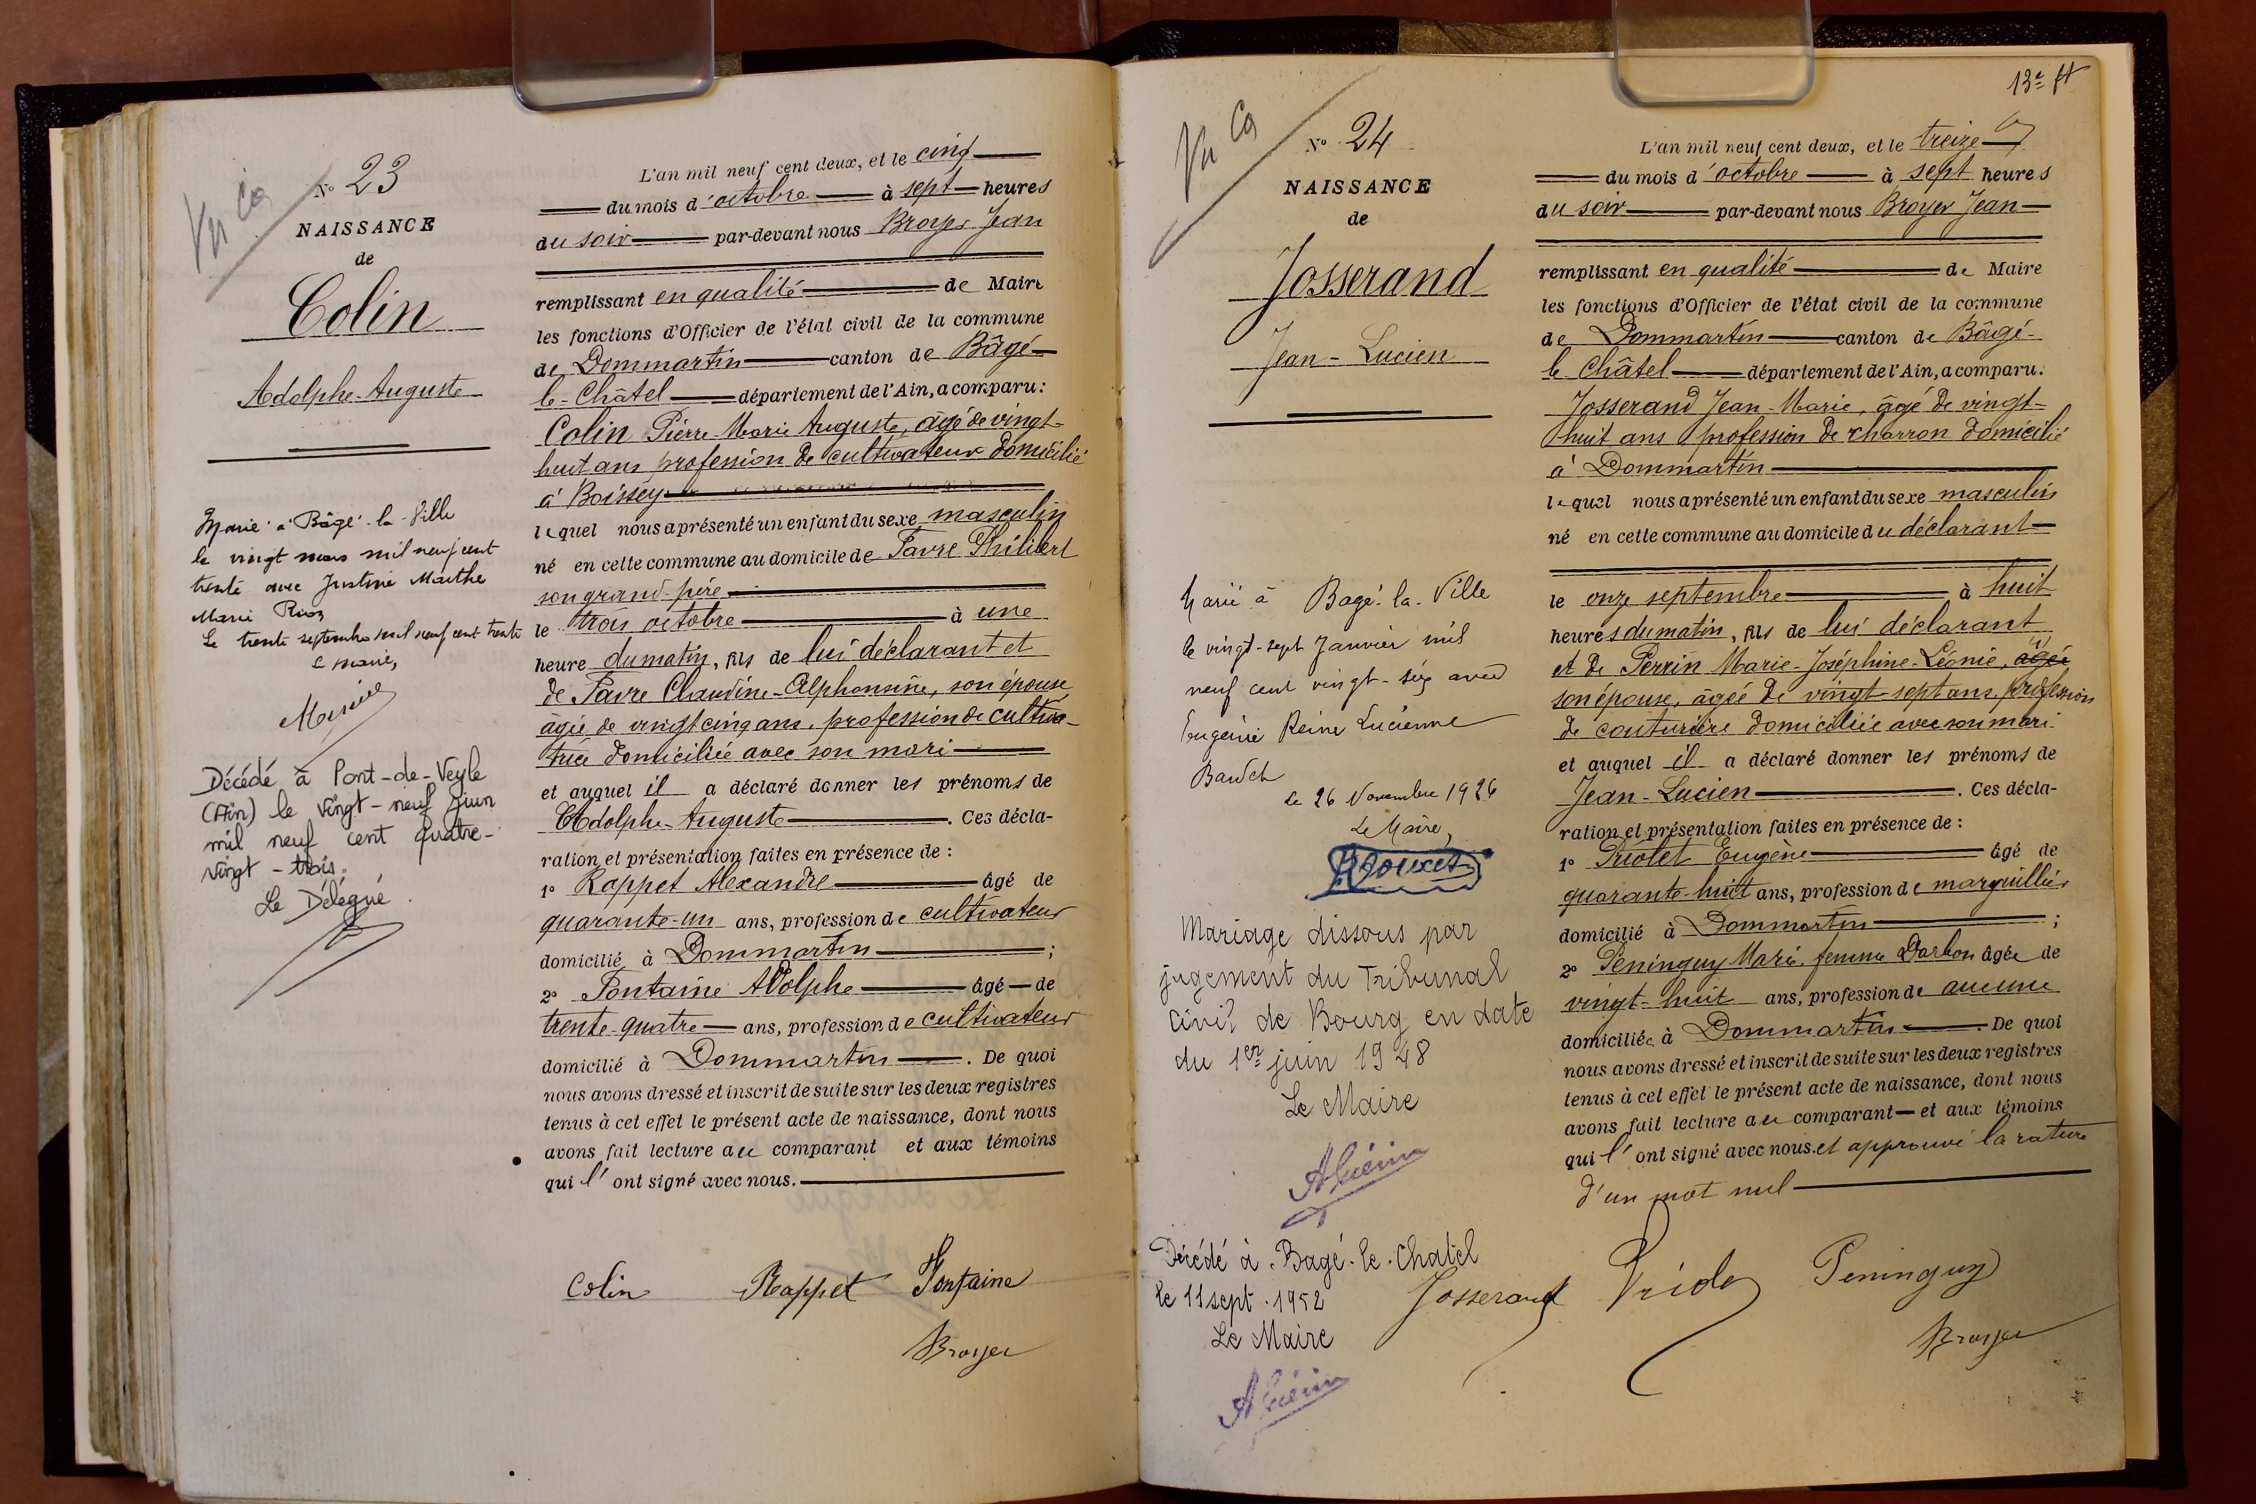 Vu Ca
N° 23
NAISSANCE
de
Colin
Adolphe-Auguste
Marié à Bâgé-la-Ville
le vingt mars mil neuf cent
trente avec Justine Marthe
Marie
Le trente septembre mil neuf cent trente
Le maire,
Décédé à Pont-de-Veyle
(Ain) le vingt-neuf juin
mil neuf cent quatre-
vingt-trois.
Le Délégué.
L'an mil neuf cent deux, et le cinq
du mois d'octobre à sept heures
du soir par-devant nous Broyer Jean
remplissant en qualité de Maire
les fonctions d'Officier de l'état civil de la commune
de Dommartin canton de Bâgé-
le-Châtel département de l'Ain, a comparu:
Colin Pierre Marie Auguste, âgé de vingt-
huit ans profession de cultivateur domicilié
à Boissey
lequel nous a présenté un enfant du sexe masculin
né en cette commune au domicile de Favre Philibert
son grand-père
le trois octobre à une
heure du matin, fils de lui déclarant et
de Favre Claudine-Alphonsine, son épouse
âgée de vingt cinq ans, profession de cultiva-
trice domiciliée avec son mari
et auquel il a déclaré donner les prénoms de
Adolphe-Auguste. Ces décla-
ration et présentation faites en présence de :
1° Rappet Alexandre âgé de
quarante-un ans, profession de cultivateur
domicilié à Dommartin ;
2° Fontaine Adolphe âgé de
trente-quatre ans, profession de cultivateur
domicilié à Dommartin. De quoi
nous avons dressé et inscrit de suite sur les deux registres
tenus à cet effet le présent acte de naissance, dont nous
avons fait lecture au comparant et aux témoins
qui l'ont signé avec nous.
Colin Rappet Fontaine
Broyer
13e ft
Vu Ca
N° 24
NAISSANCE
de
Josserand
Jean-Lucien
Marié à Bagé-la-Ville
le vingt-sept Janvier mil
neuf cent vingt-six avec
Eugénie Reine Lucienne
Le 26 Novembre 1926
Le Maire,
Mariage dissous par
jugement du Tribunal
civil de Bourg en date
du 1er juin 1948
Le Maire
AGuérin
Décédé à Bagé-le-Chatel
le 11 sept. 1952
Le Maire
AGuérin
L'an mil neuf cent deux, et le treize
du mois d'octobre à sept heures
du soir par-devant nous Broyer Jean
remplissant en qualité de Maire
les fonctions d'Officier de l'état civil de la commune
de Dommartin canton de Bâgé-
le Châtel département de l'Ain, a comparu:
Josserand Jean-Marie, âgé de vingt-
huit ans profession de charron domicilié
à Dommartin
lequel nous a présenté un enfant du sexe masculin
né en cette commune au domicile du déclarant
le onze septembre à huit
heures du matin, fils de lui déclarant
et de Perrin Marie-Joséphine-Léonie, âgée
son épouse, âgée de vingt-sept ans, profession
de couturière domiciliée avec son mari
et auquel il a déclaré donner les prénoms de
Jean-Lucien. Ces décla-
ration et présentation faites en présence de :
1° Eugène âgé de
quarante-huit ans, profession de marguillier
domicilié à Dommartin ;
2° Peninguy Marie femme Darbon âgée de
vingt-huit ans, profession de aucune
domiciliée à Dommartin. De quoi
nous avons dressé et inscrit de suite sur les deux registres
tenus à cet effet le présent acte de naissance, dont nous
avons fait lecture au comparant et aux témoins
qui l'ont signé avec nous. et approuvé la rature
d'un mot nul
Josserand Peninguy
Broyer